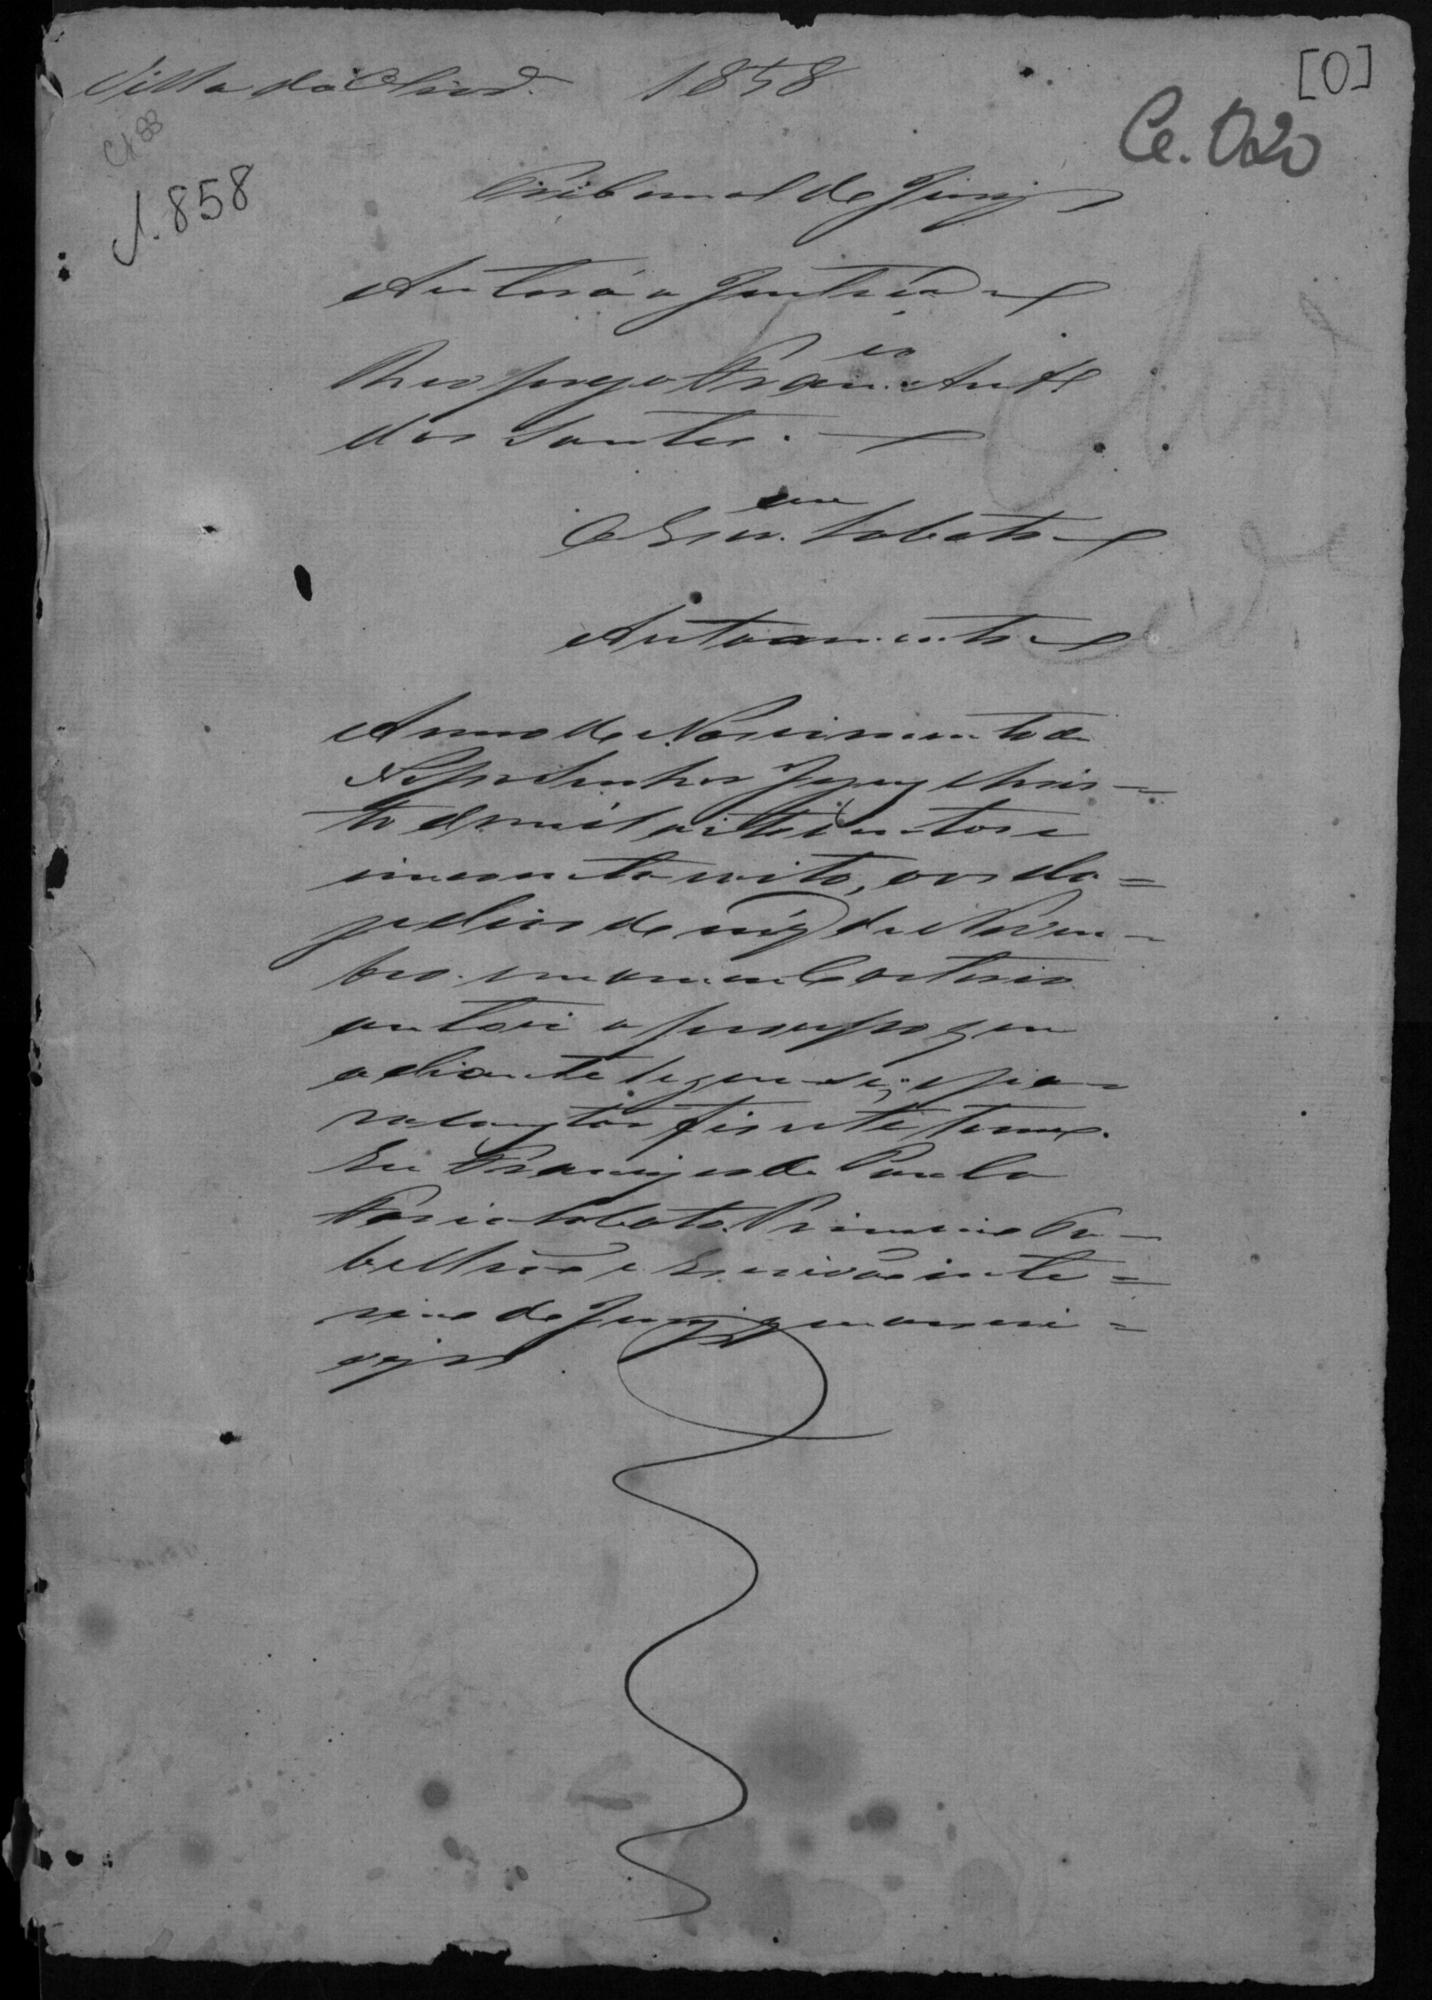 Villa da Christ.ª 1858
[0]
Ce. 020
Cx 88
N. 858
Tribunal do Jury
Autora a Justiça
Reo prezo Fran.co Ant.e
dos Santos.
O Escr.am Lobato
Autoamento
Anno do Nascimento de
Nosso Senhor Jesus Chris-
to de mil oito centos e
cincoenta e oito, aos do-
do mez de Novem-
bro em meu Cartorio
autoei o processo que
adiante segue-se; e pa-
ra constar fis este termo.
Eu Francisco de Paula
Faria Lobato Primeiro Ta-
bellião e Escrivão inte-
rino do Jury que o escre-
vy